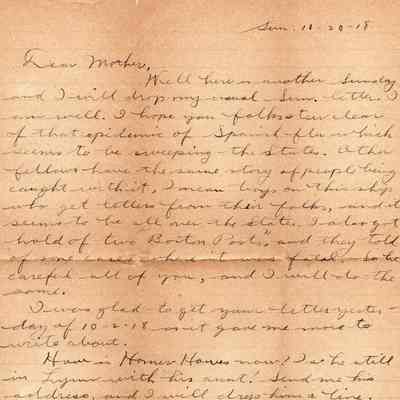 Sun. 10-20-18
Dear Mother,
Well here is another Sunday
and I will drop my usual Sun. letter. I
am well. I hope you folks steer clear
of that epidemic of Spanish-flu which
seems to be sweeping the States. Other
fellows have the same story of people being
caught with it, I mean boys on this ship
who get letters from their folks, and it
seems to be all over the States. I also got
hold of two "Boston Posts", and they told
of some cases where it was fatal. So be
careful all of you, and I will do the
same.
I was glad to get your letter yester-
day of 10-2-18 as it gave me more to
write about.
How is Homer now? Is he still
in Lynn with his aunt? Send me his
address, and I will drop him a line.